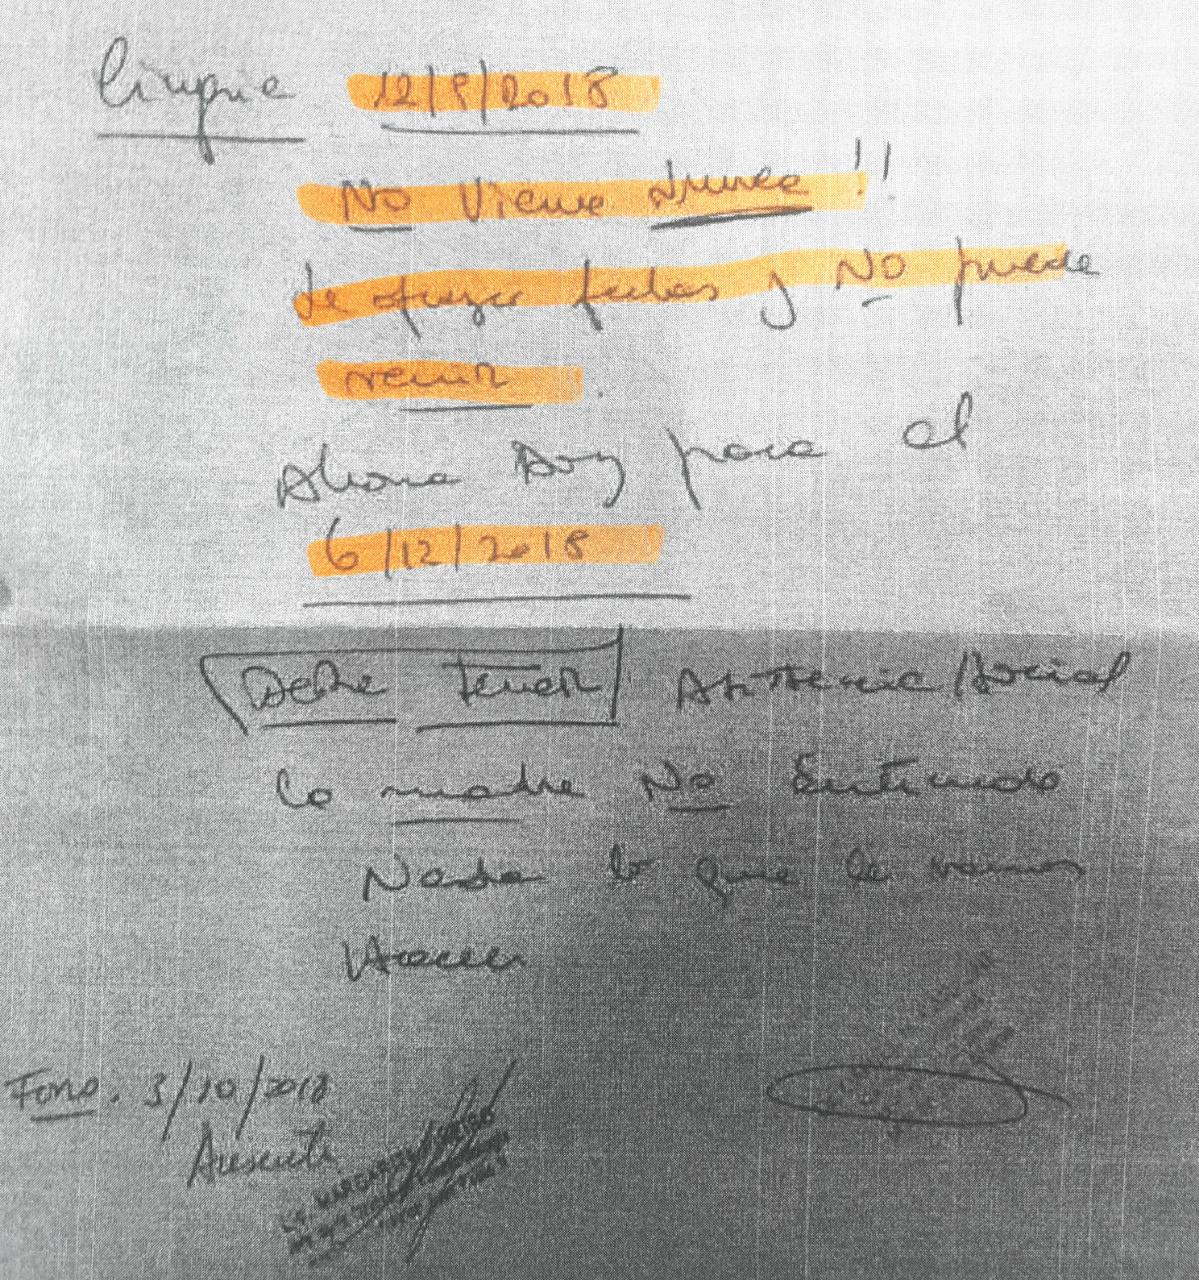 Cirugia 12/9/2018
No viene nunca!!
Le ofrezco fechas y NO puede
venir.
Ahora Doy para el
6/12/2018
Debe Tener Asistencia Social
la madre No
Nada lo que le vamos
Hacer
Fono. 3/10/2018
Ausente